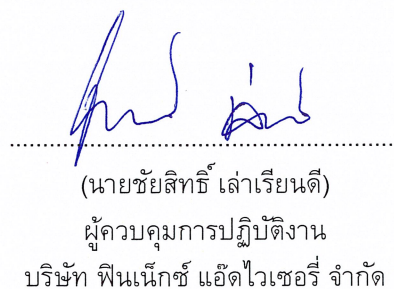 (นายชัยสิทธิ์ เล่าเรียนดี)
ผู้ควบคุมการปฏิบัติงาน
บริษัท ฟินเน็กซ์ แอ๊ดไวเซอรี่ จำกัด